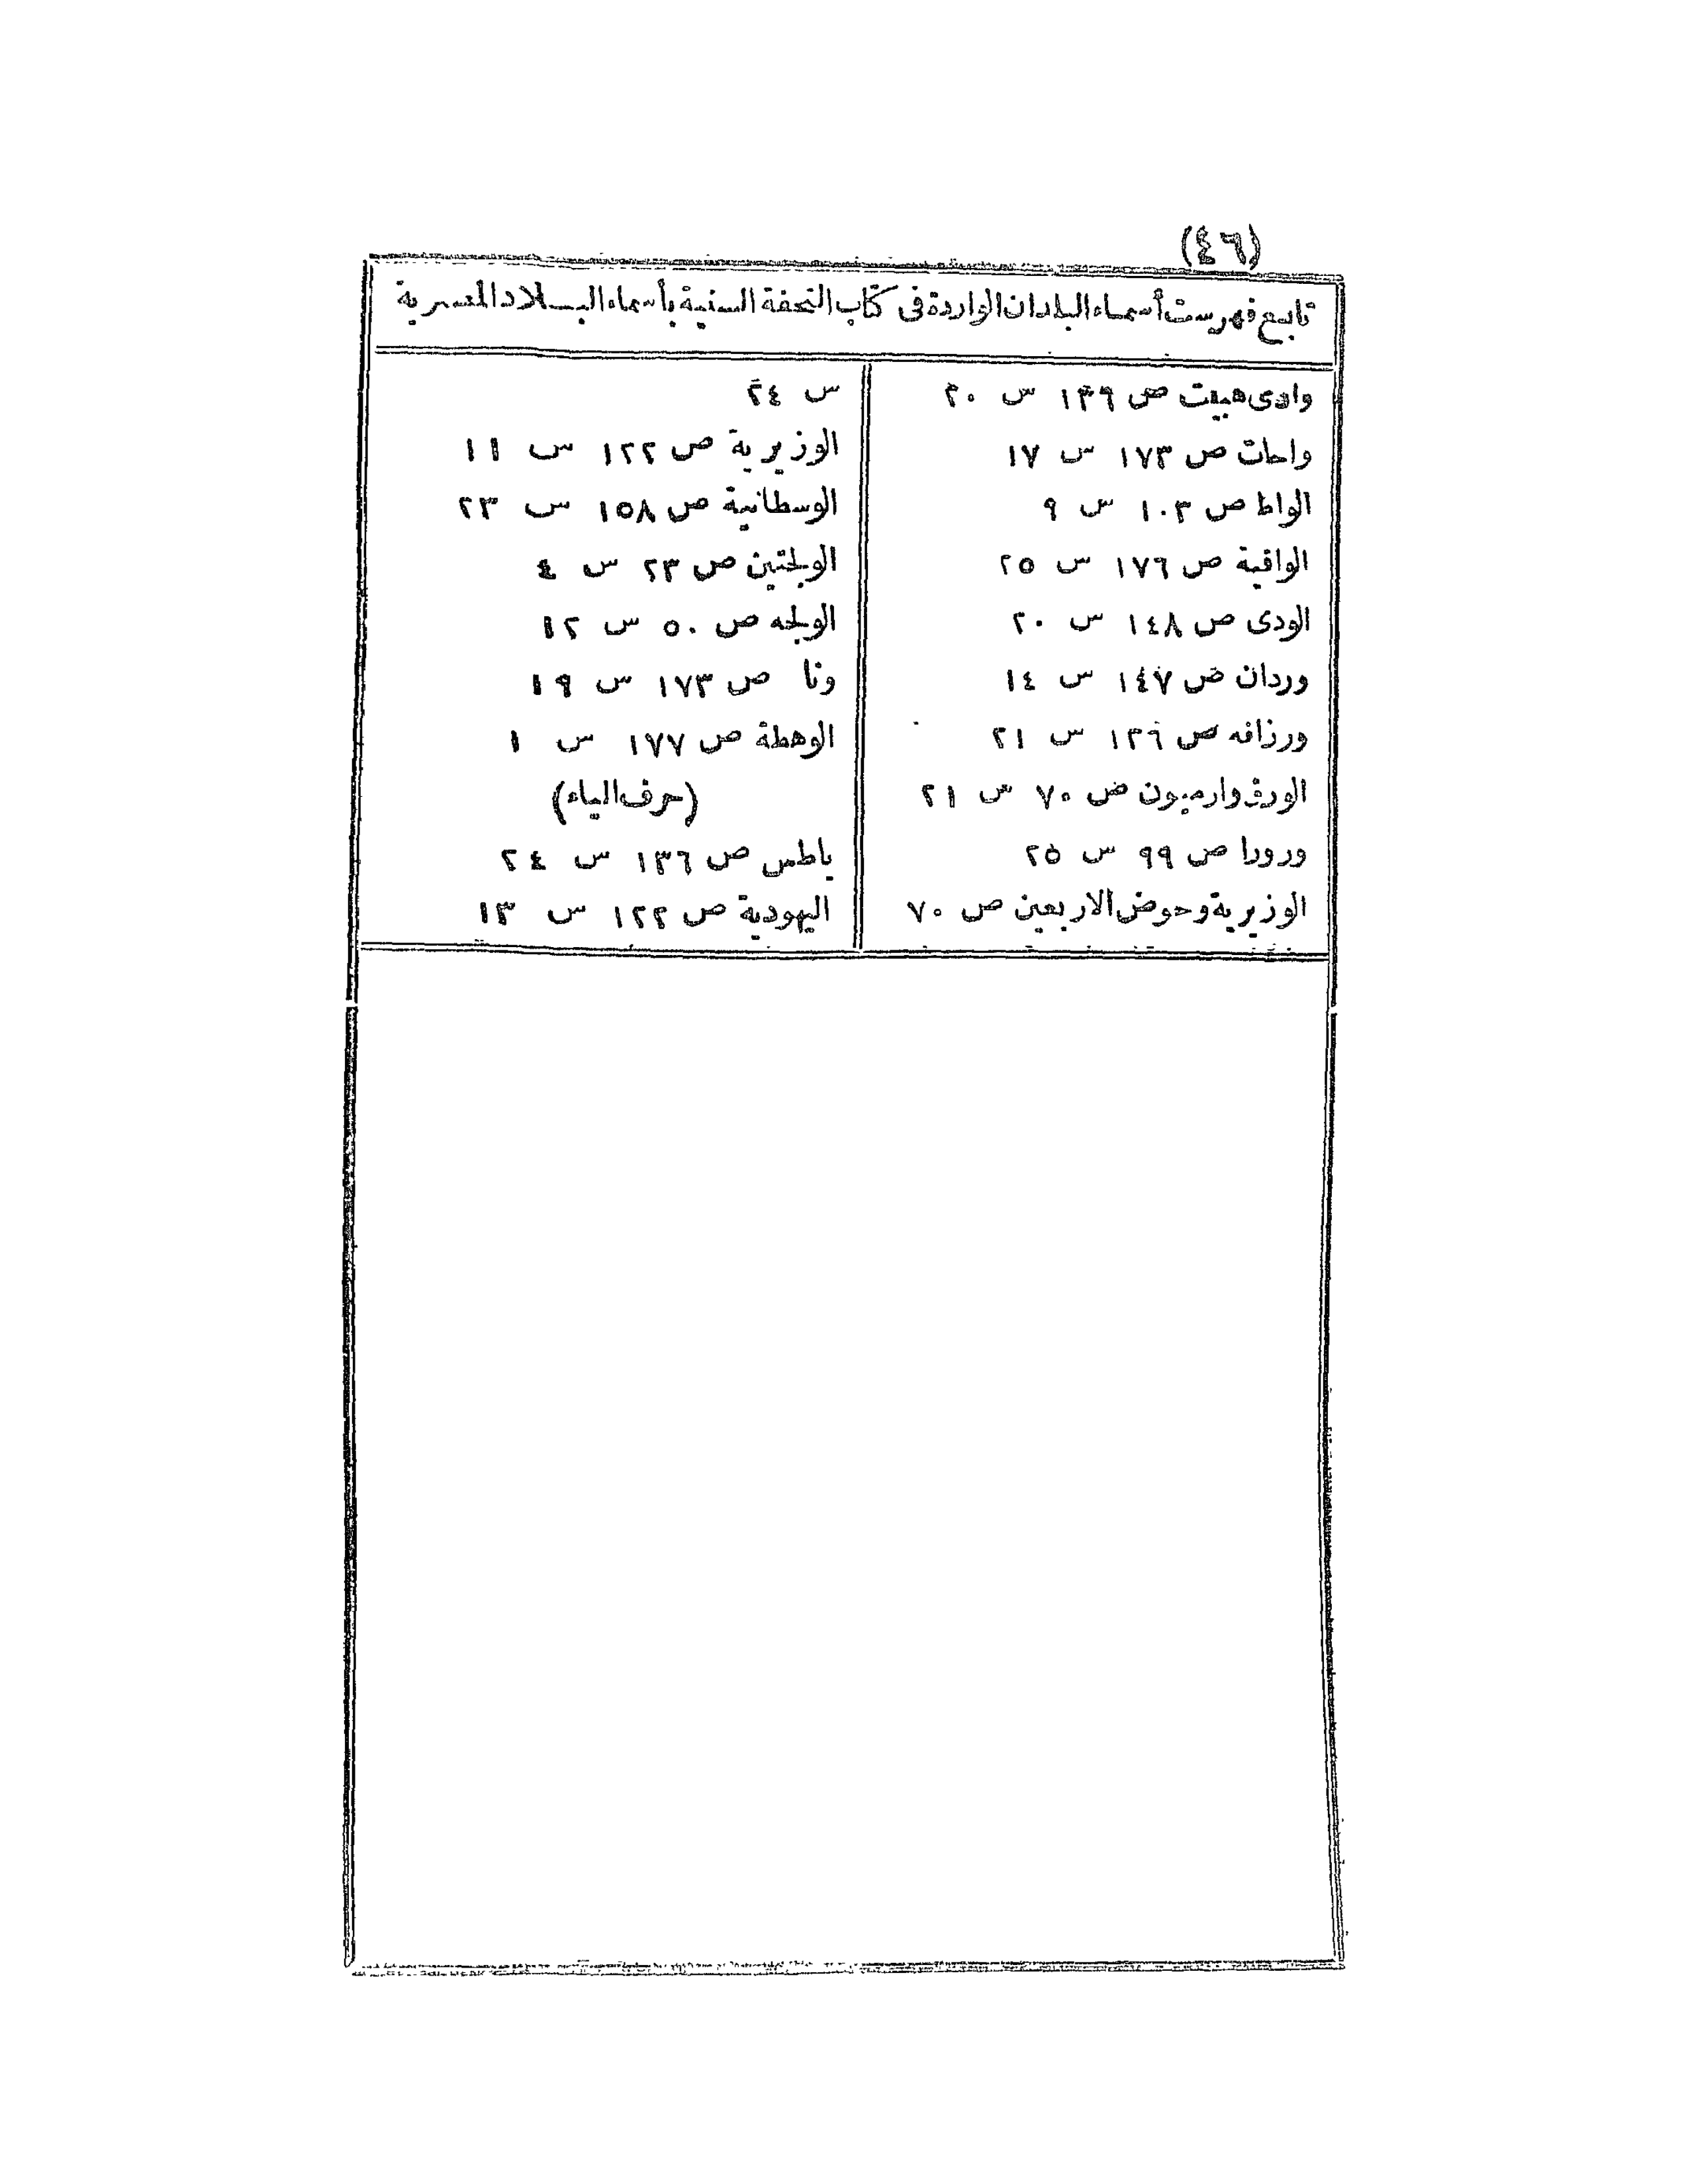 (٤٦)
تابع فهرست أسماء البلدان الواردة فى كتاب التحفة السنية بأسماء البلاد المصرية
وادى هبيت ص ١٣٩ س ٢٠
واحات ص ١٧٣ س ١٧
الواط ص ١٠٣ س ٩
الواقية ص ١٧٦ س ٢٥
الودى ص ١٤٨ س ٢٠
وردان ص ١٤٧ س ١٤
ورزافه ص ١٣٦ س ٢١
الورق وارميون ص ٧٠ س ٢١
ورورا ص ٩٩ س ٢٥
الوزيرية وحوض الاربعين ص ٧٠
س ٢٤
الوزيرية ص ١٢٢ س ١١
الوسطانية ص ١٥٨ س ٢٣
الولجتين ص ٢٣ س ٤
الولجه ص ٥٠ س ١٢
ونا ص ١٧٣ س ١٩
الوهطة ص ١٧٧ س ١
(حرف الياء)
ياطس ص ١٣٦ س ٢٤
اليهودية ص ١٢٢ س ١٣